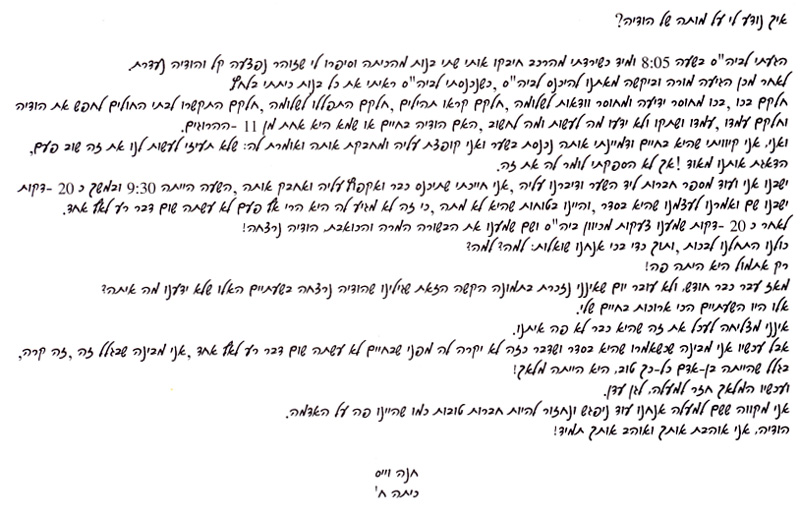 איך נודע לי על מותה של הודיה?
הגעתי לביה"ס בשעה 8:05 ומיד כשירדתי מהרכב חיבקו אותי שתי בנות מהכיתה וסיפרו לי שזוהר נפצעה קל והודיה נעדרת.
לאחר מכן הגיעה מורה וביקשה מאתנו להיכנס לביה"ס ,כשנכנסתי לביה"ס ראיתי את כל בנות כיתתי בלחץ
חלקם בכו ,בכו מחוסר ידיעה ומחוסר וודאות לשלומה ,חלקם קראו תהילים ,חלקם התפללו לשלומה ,חלקם התקשרו לבתי החולים לחפש את הודיה
וחלקם עמדו ,עמדו ושתקו ולא ידעו מה לעשות ומה לחשוב ,האם הודיה בחיים או שמא היא אחת מן 11 -ההרוגים.
ואני, אני קיוויתי שהיא בחיים ודמיינתי אותה נכנסת בשער ואני קופצת עליה ומחבקת אותה ואומרת לה: שלא תעיזי לעשות לנו את זה שוב פעם,
הדאגת אותנו מאוד !אך לא הספקתי לומר לה את זה.
ישבנו אני ועוד מספר חברות ליד השער ודיברנו עליה ,אני חייכתי שתיכנס כבר ואקפוץ עליה ואחבק אותה ,השעה הייתה 9:30 ובמשך כ 20 -דקות
ישבנו שם ואמרנו לעצמנו שהיא בסדר ,והיינו בטוחות שהיא לא מתה ,כי זה לא מגיע לה היא הרי אף פעם לא עשתה שום דבר רע לאף אחד.
לאחר כ 20 -דקות שמענו צעקות מכיוון ביה"ס ושם שמענו את הבשורה המרה והכואבת, הודיה נרצחה!
כולנו התחלנו לבכות ,ותוך כדי בכי אנחנו שואלות: למה? למה?
רק אתמול היא היתה פה!
מאז עבר כבר חודש, ולא עובר יום שאינני נזכרת בתמונה הקשה הזאת שגילינו שהודיה נרצחה בשעתיים האלו שלא ידענו מה איתה?
אלו היו השעתיים הכי ארוכות בחיים שלי.
אינני מצליחה לעכל את זה שהיא כבר לא פה איתנו.
אבל עכשיו אני מבינה שכשאמרו שהיא בסדר ושדבר כזה לא יקרה לה מפני שבחיים לא עשתה שום דבר רע לאף אחד ,אני מבינה שבגלל זה ,זה קרה,
בגלל שהייתה בן-אדם כל-כך טוב, היא הייתה מלאך!
ועכשיו המלאך חזר למעלה, לגן עדן.
אני מקווה ששם למעלה אנחנו עוד ניפגש ונחזור להיות חברות טובות כמו שהיינו פה על האדמה.
הודיה, אני אוהבת אותך ואוהב אותך תמיד!
חנה וייס
כיתה ח'